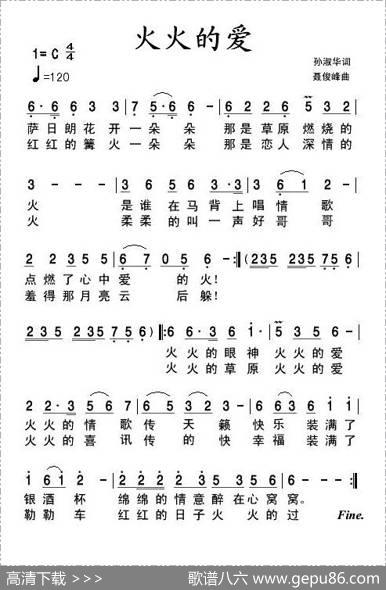 火火的爱
1= C 4/4
♩=120
孙淑华词
聂俊峰曲
6· 6 6 3 3 | 7 5·6 6 - | 6 2 2 6 2 5 3 2 |
萨日朗花开一朵朵 那是草原燃烧的
红红的篝火一朵朵 那是恋人深情的
3 - - - | 6 3 5 6 3·3 | 3 6 1 2 - |
火 是谁在马背上唱情歌
火 柔柔的叫一声好哥哥
2 2 3 5 5 | 6 7 0 5 6 - :‖ (2 3 5 5 2 3 5 7 5 6
点燃了心中爱的火!
羞得那月亮云后躲!
2 3 5 2 3 5 2 3 5 7 5 6) ‖: 6 6·3 6 1· | 5 5 3 5 -
火火的眼神火火的爱
火火的草原火火的爱
2 2·3 5 6 7 | 6 5 3 2 3 - | 2 6 6 3 6 1 1
火火的情歌传天籁快乐装满了
火火的喜讯传的快幸福装满了
1 6 1 - | 2 2·2 2 3 7 5 | 6 6 6 - - :‖
银酒杯 绵绵的情意醉在心窝窝。
勒勒车 红红的日子火火的过 Fine.
高清下载 >>>
歌谱八六 www.gepu86.com